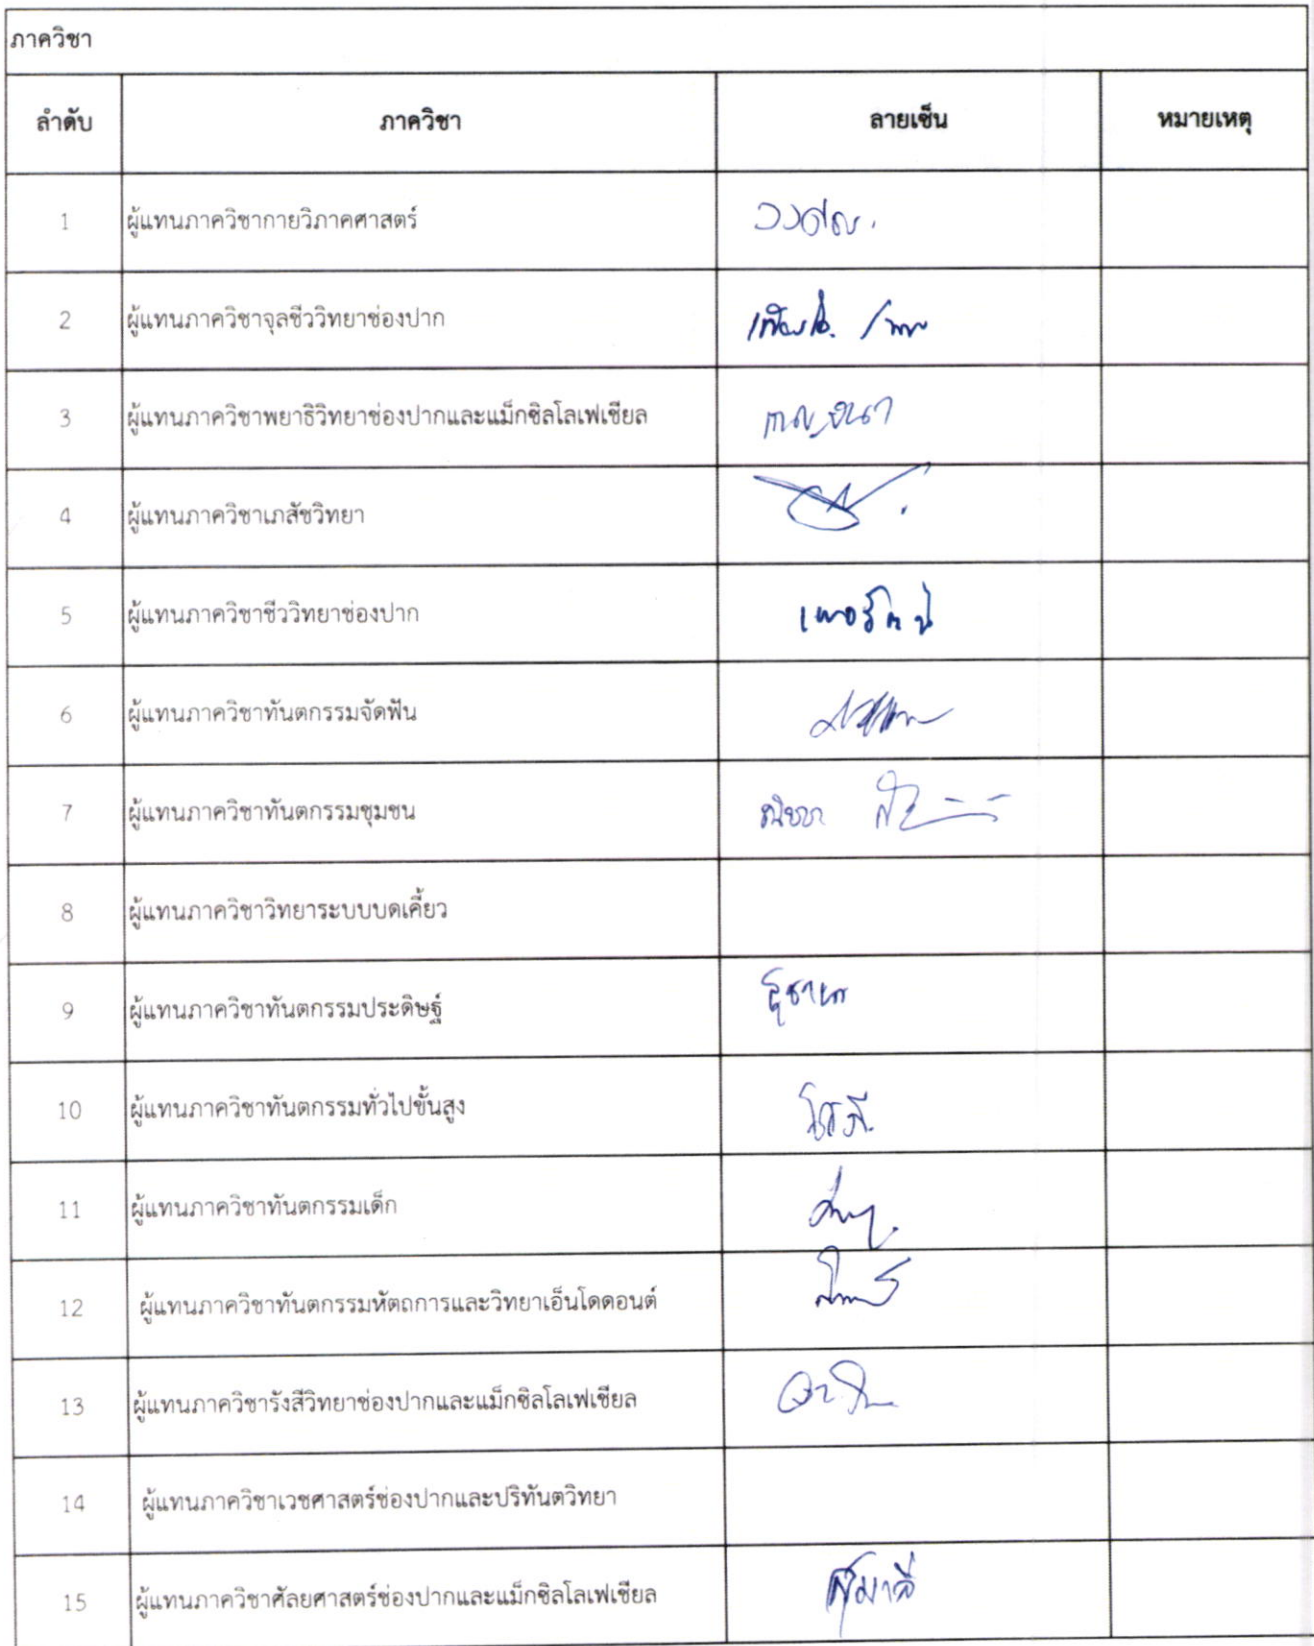 ภาควิชา
ลำดับ ภาควิชา ลายเซ็น หมายเหตุ
1 ผู้แทนภาควิชากายวิภาคศาสตร์
2 ผู้แทนภาควิชาจุลชีววิทยาช่องปาก
3 ผู้แทนภาควิชาพยาธิวิทยาช่องปากและแม็กซิลโลเฟเชียล
4 ผู้แทนภาควิชาเภสัชวิทยา
5 ผู้แทนภาควิชาชีววิทยาช่องปาก
6 ผู้แทนภาควิชาทันตกรรมจัดฟัน
7 ผู้แทนภาควิชาทันตกรรมชุมชน
8 ผู้แทนภาควิชาวิทยาระบบบดเคี้ยว
9 ผู้แทนภาควิชาทันตกรรมประดิษฐ์
10 ผู้แทนภาควิชาทันตกรรมทั่วไปขั้นสูง
11 ผู้แทนภาควิชาทันตกรรมเด็ก
12 ผู้แทนภาควิชาทันตกรรมหัตถการและวิทยาเอ็นโดดอนต์
13 ผู้แทนภาควิชารังสีวิทยาช่องปากและแม็กซิลโลเฟเชียล
14 ผู้แทนภาควิชาเวชศาสตร์ช่องปากและปริทันตวิทยา
15 ผู้แทนภาควิชาศัลยศาสตร์ช่องปากและแม็กซิลโลเฟเชียล สุมาลี